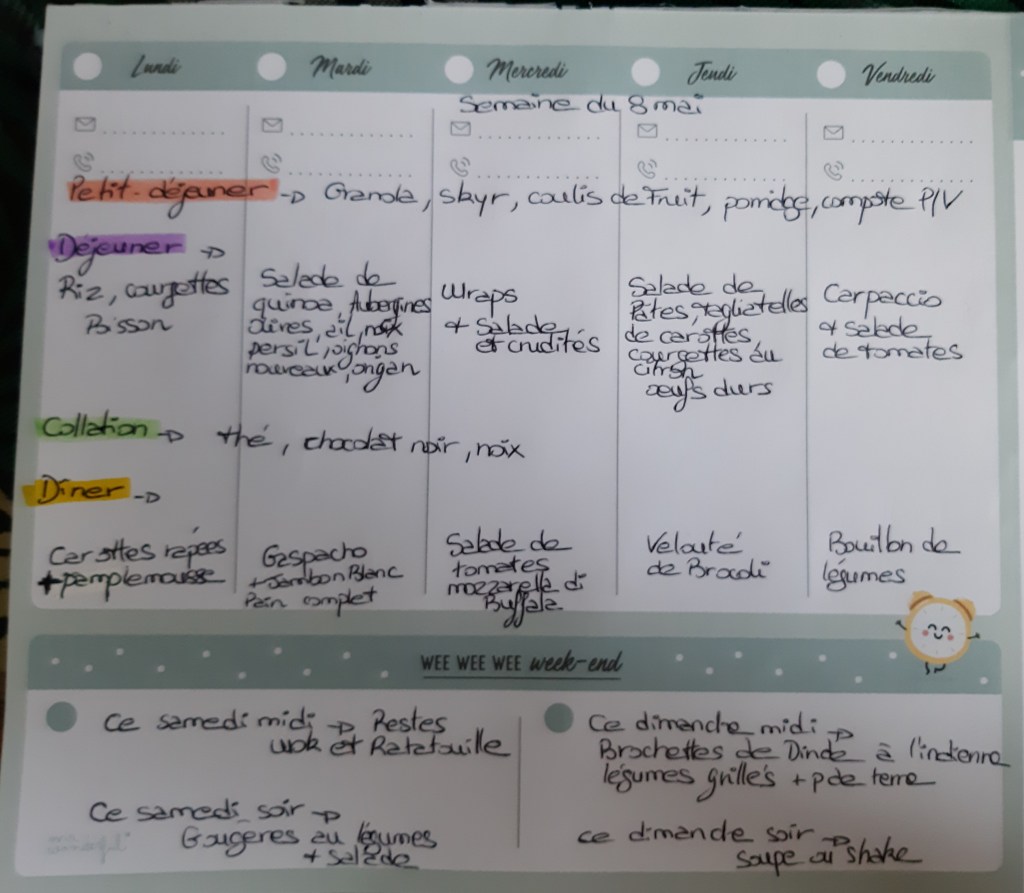 Lundi Mardi Mercredi Jeudi Vendredi
Semaine du 8 mai
Petit-déjeuner -> Granola, skyr, coulis de Fruit, porridge, compote P/V
Déjeuner ->
Riz, courgettes
Poisson
Salade de
quinoa, Aubergines
olives, ail,
persil, oignons
nouveaux, origan
Wraps
+ Salade
et crudités
Salade de
Pâtes, tagliatelles
de carottes,
courgettes au
citron
œufs durs
Carpaccio
+ salade
de tomates
Collation -> thé, chocolat noir, noix
Dîner ->
Carottes rapées
+ pamplemousse
Gaspacho
+ Jambon Blanc
Pain complet
Salade de
tomates
mozzarella di
Buffala
Velouté
de Brocoli
Bouillon de
légumes
WEE WEE WEE week-end
Ce samedi midi -> Restes
wok et Ratatouille
Ce samedi soir ->
Gougeres au légumes
+ salade
Ce dimanche midi ->
Brochettes de Dinde à l'indienne
légumes grillés + p de terre
ce dimande soir ->
soupe ou shake